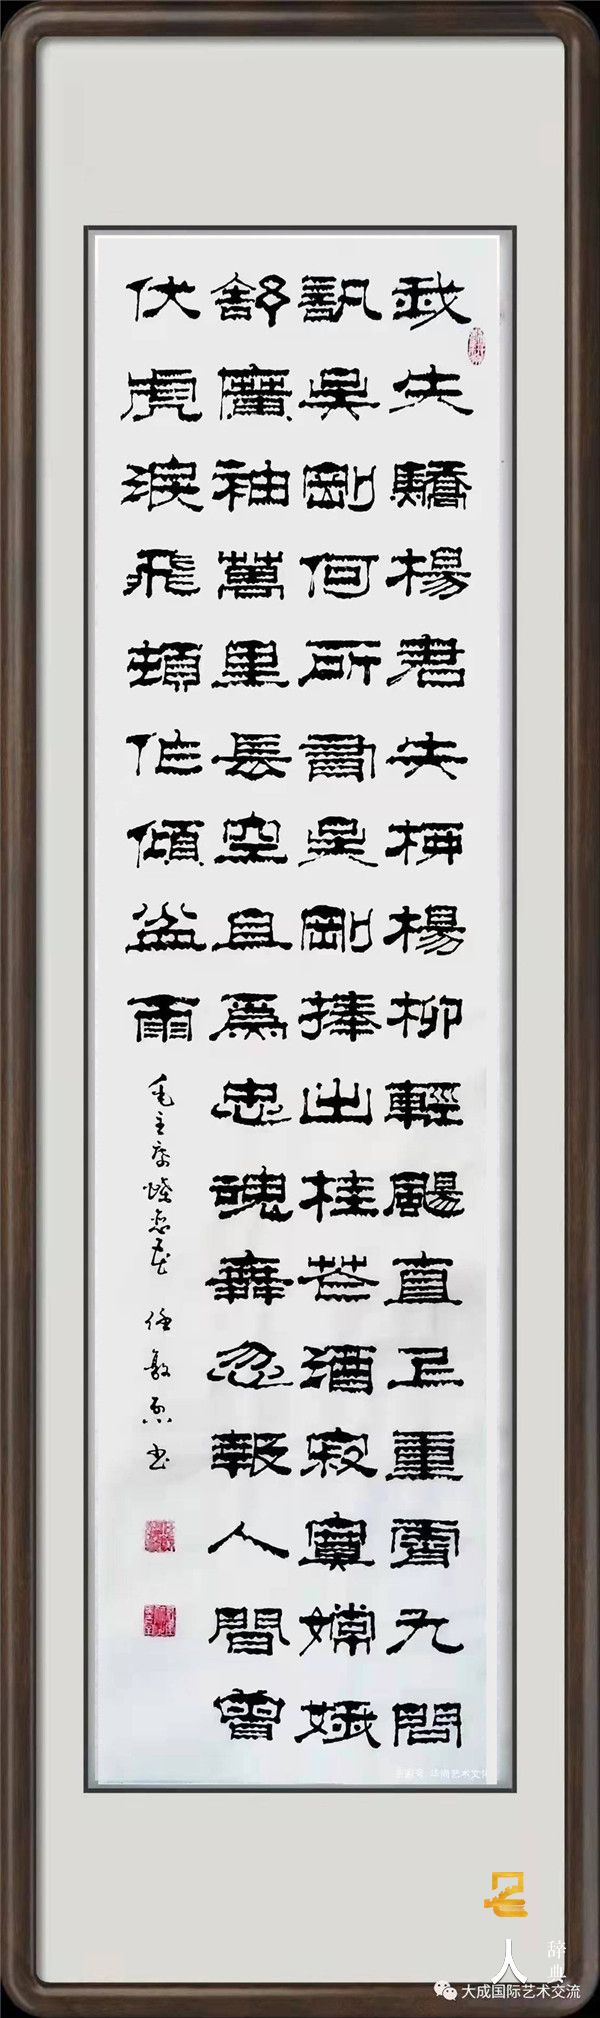 我失驕楊君失柳楊柳輕颺直上重霄九問
訊吳剛何所有吳剛捧出桂花酒寂寞嫦娥
舒廣袖萬里長空且為忠魂舞忽報人間曾
伏虎淚飛頓作傾盆雨
毛主席蝶恋花 任敦書
人
辞典
大成国际艺术交流